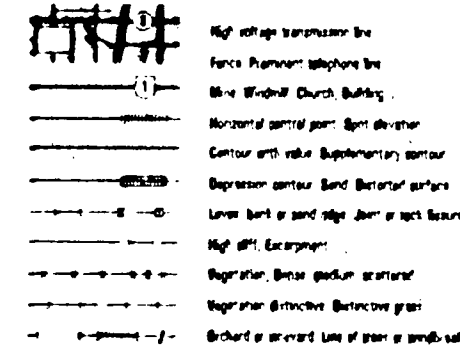 High voltage transmission line
Fence Prominent telephone line
Mine Windmill Church, Building
Horizontal control point Spot elevation
Contour with value Supplementary contour
Depression contour Sand Distorted surface
Levee bank or sand ridge Joint or rock fissure
High cliff, Escarpment
Vegetation, Dense medium scattered
Vegetation distinctive Distinctive
Orchard or vineyard Line of trees or windbreak